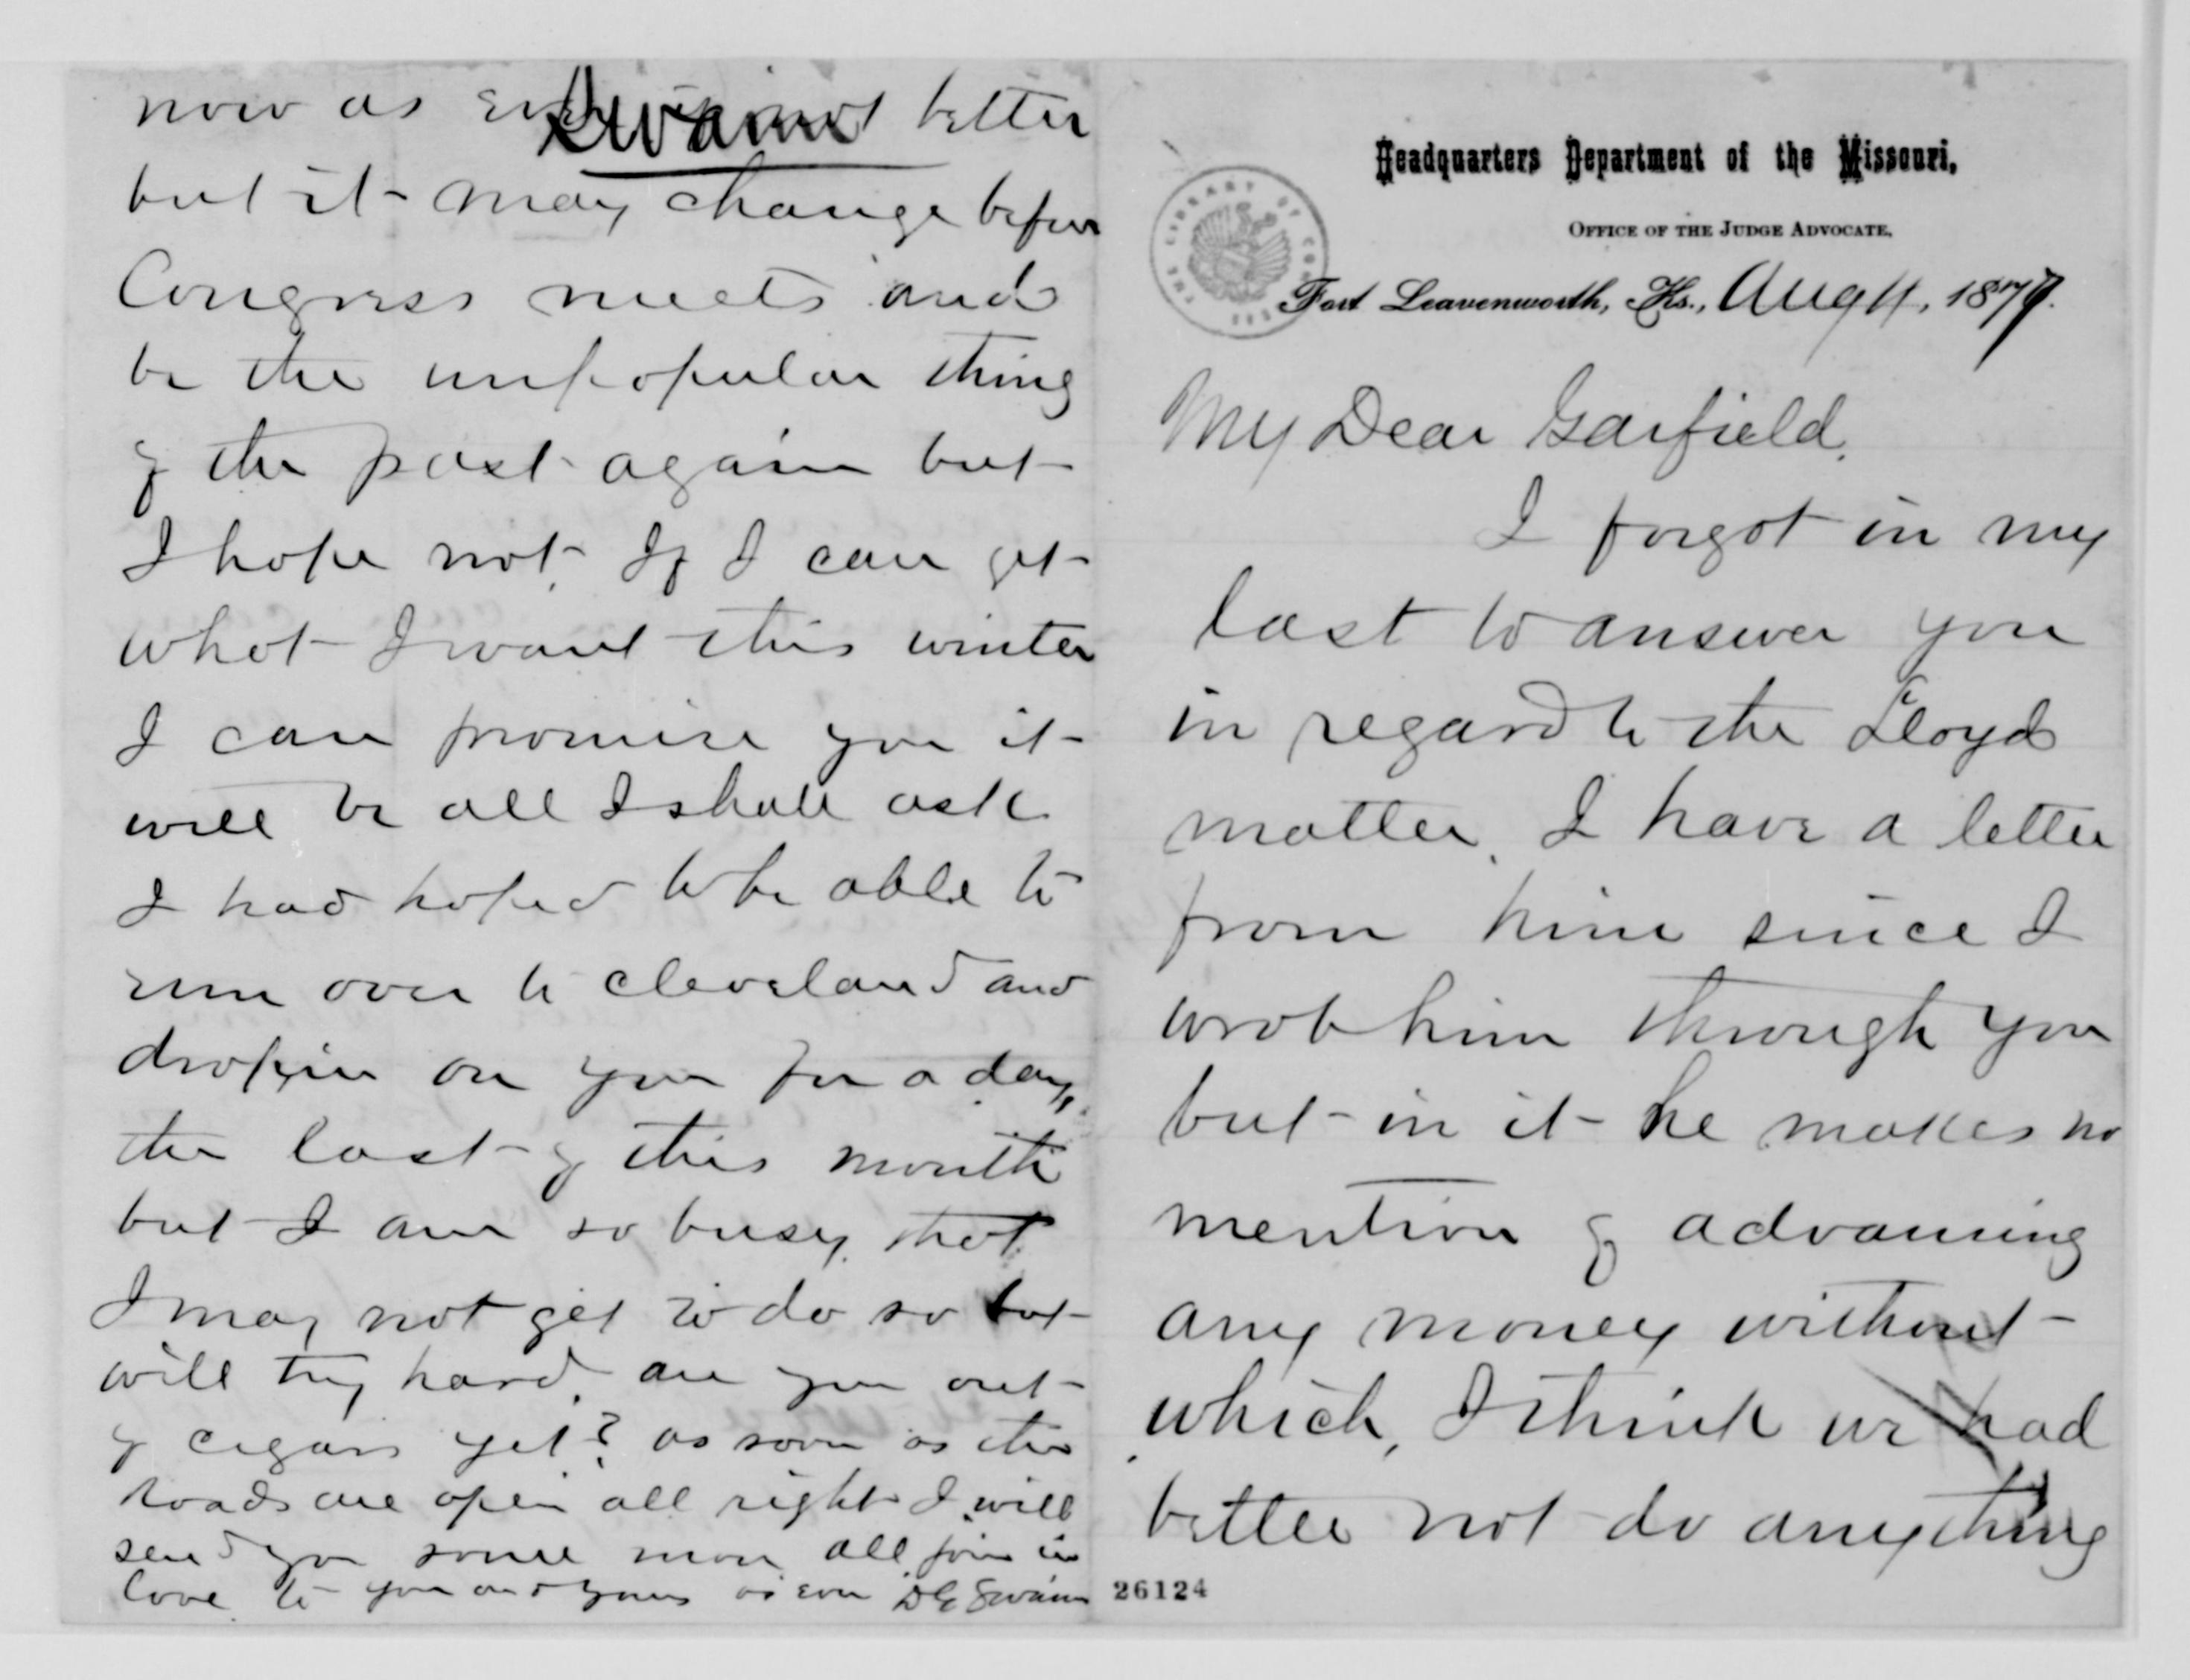 Headquarters Department of the Missouri,
OFFICE OF THE JUDGE ADVOCATE,
THE LIBRARY OF CONGRESS
Fort Leavenworth, Ks., Aug 11, 1877.
My Dear Garfield,
I forgot in my
last to answer you
in regard to the Lloyd
matter. I have a letter
from him since I
wrote him through you
but in it he makes no
mention of advancing
any money without
which, I think we had
better not do anything
26124
now as ever not better
Swaim
but it may change before
Congress meets and
be the unpopular thing
of the past again but
I hope not. If I can get
what I want this winter
I can promise you it
will be all I shall ask
I had hoped to be able to
run over to Cleveland and
drop in on you for a day,
the last of this month
but I am so busy that
I may not get to do so but
will try hard. are you out
of cigars yet? as soon as the
roads are open all right I will
send you some more all join in
love to you and yours as ever D G Swaim